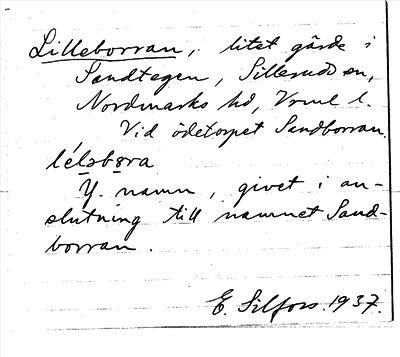 Lilleborran, litet gärde i
Sandtegen, Sillerud sn,
Nordmarks hd, Vrml l.
Vid ödetorpet Sandborran.
lélsbɵra
Y. namn, givet i an-
slutning till namnet Sand-
borran.
E. Silfors. 1937.